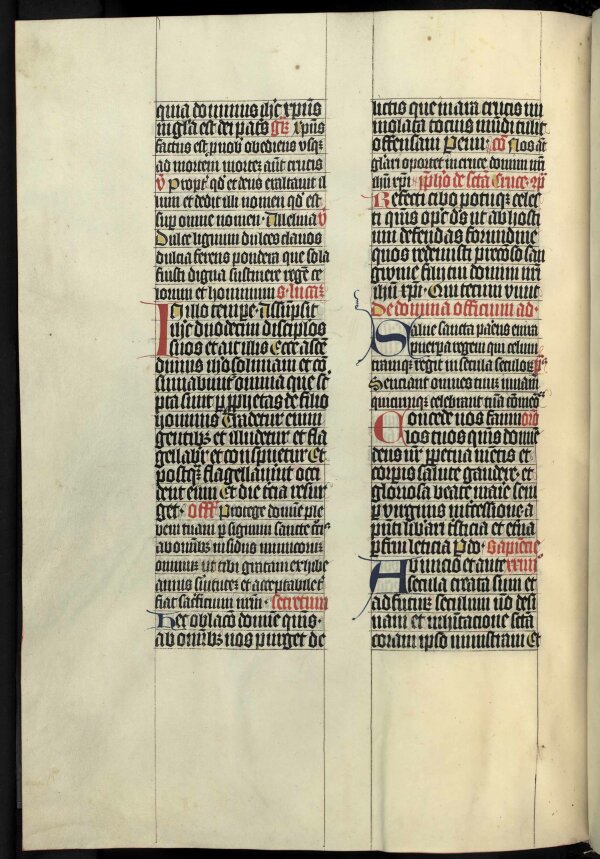 quia dominus ihc xpus
in gla est dei patris gr xpus
factus est p nob obediens vsq
ad mortem mortez aut crucis
v Propt qd et deus exaltauit il
lum et dedit illi nomen qd est
sup omne nomen Alleluia v
Dulce lignum dulces clauos
dulcia ferens pondera que sola
fuisti digna sustinere regē ce
lorum et hominum s lucaz
In illo tempe Assupsit
ihc duodecim disciplos
suos et ait illis Ecce ascē
dimus iherosolimam et cō
sumabunt omnia que sc
pta sunt p pphetas de filio
hominis Tradetur enim
gentibz et illudetur et fla
gellabr et conspuetur Et
postqz flagellauint occi
dent eum Et die tcia resur
get off Protege domine ple
bem tuam p signum sancte
ab omibz insidiis inimicorum
omnium ut tibi gratam exhibe
amus seruitutez et acceptabile
fiat sacrificium nrm secretum
Hec oblacio domine quis
ab omibz nos purget de
lictis que in ara crucis im
molata tocius mūdi tulit
offensam Penn cō Nos aut
glari oportet in cruce domini nri
ihu xpi de scta Cruce
Refecti cibo potuqz celes
ti quis opc ds ut ab hosti
um defendas formidine
quos redemisti precioso san
gwine filij tui domini nri
ihu xpi Qui tecum viuit
De domina officium ad
Salue sancta parens enixa
puerpera regem qui celum
terramqz regit in secula seculorum ps
Senciant omnes tuum iuuam
quicumqz celebrant tuā cōmeō
Concede nos famu oro
los tuos quis domine
deus ur ppetua mentis et
corpis salute gaudere et
gloriosa beate marie semp
virginis intercessione a
pnti libari tristicia et etna
pfrui leticia P do sapiencie
Ab inicio et ante xxiiii
secula creata sum et
ad futurz seculum nō desi
nam et in habitacione scta
coram ipso ministraui Et